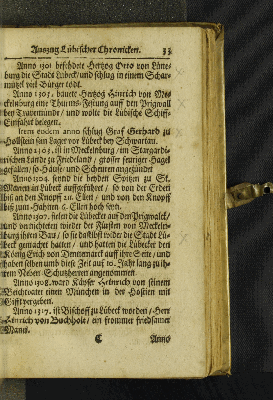 Auszug Lübescher Chronicken. 33
Anno 1301 befehdete Hertzog Otto von Lüne-
burg die Stadt Lübeck/ und schlug in einem Schar-
mützel viel Bürger todt.
Anno 1303. bauete Hertzog Hinrich von Me-
ckelnburg eine Thurns-Festung auff den Prigwall
bey Travemünde/ und wolte die Lübische Schiff-
Einfahrt belegen.
Item eodem anno schlug Graf Gerhard zu
Hollstein sein Lager vor Lübeck bey Schwartau.
Anno 1303. ist in Meckelnburg/ im Stargardi-
schen Lande zu Friedeland/ grosser feuriger Hagel
gefallen/ so Häuser und Scheuren angezündet
Anno 1304. seynd die beyden Spitzen zu St.
Marien in Lübeck auffgeführet/ so von der Erden
biß an den Knopff Ellen/ und von den Knopff
biß zum Hahnen 6. Ellen hoch seyn.
Anno 1307. fielen die Lübecker auf den Prigwalck/
und vernichteten wieder der Fürsten von Meckeln-
burg ihren Bau/ so sie daselbst wider die Stadt Lü-
beck gemacht hatten/ und hatten die Lübecker den
König Erich von Dennemarck auff ihre Seite/ und
haben selben umb diese Zeit auf 10. Jahr lang zu ih-
rem Neben-Schutzherren angenommen.
Anno 1308. ward Käyser Heinrich von seinem
Beichtvater einen München in der Hostien mit
Gifft vergeben.
Anno 1317. ist Bischoff zu Lübeck worden/ Herr
Hinrich von Buchholt/ ein frommer friedsamer
Mann.
C Anno